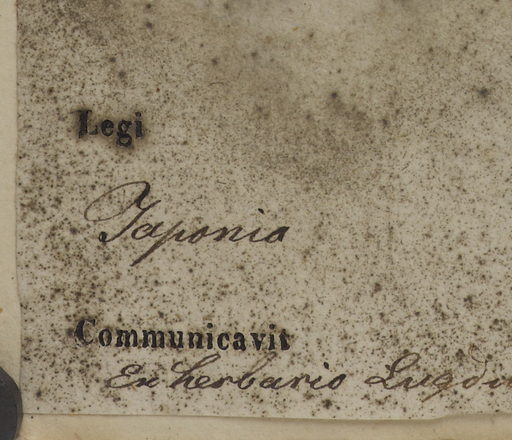 Legi
Japonia
Communicavit
Ex herbario Lugdu